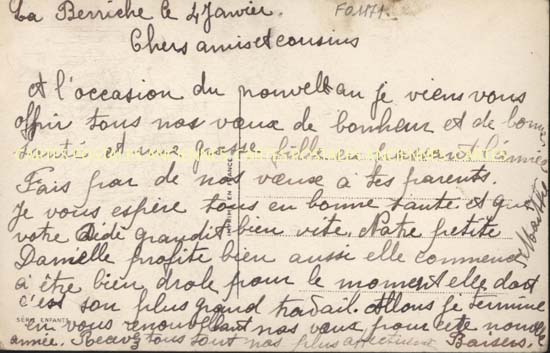 La Berriche le 4 Janvier.
FO1171
Chers amis et cousins
A l'occasion du nouvel an je viens vous
offrir tous nos vœux de bonheur et de bonne
santé et une grosse fille en
Fais par de nos vœux à tes parents.
Je vous espère tous en bonne santé et que
votre Dédé grandit bien vite. Notre petite
Danielle profite bien aussi elle commence
à être bien drole pour le moment elle dort
c'est son plus grand travail. Allons je termine
en vous renouvellant nos vœux pour cette nouvelle
année. Recevez tous nos plus
Baisers.
Marthe
IMPRIMÉ EN FRANCE
SÉRIE ENFANTS